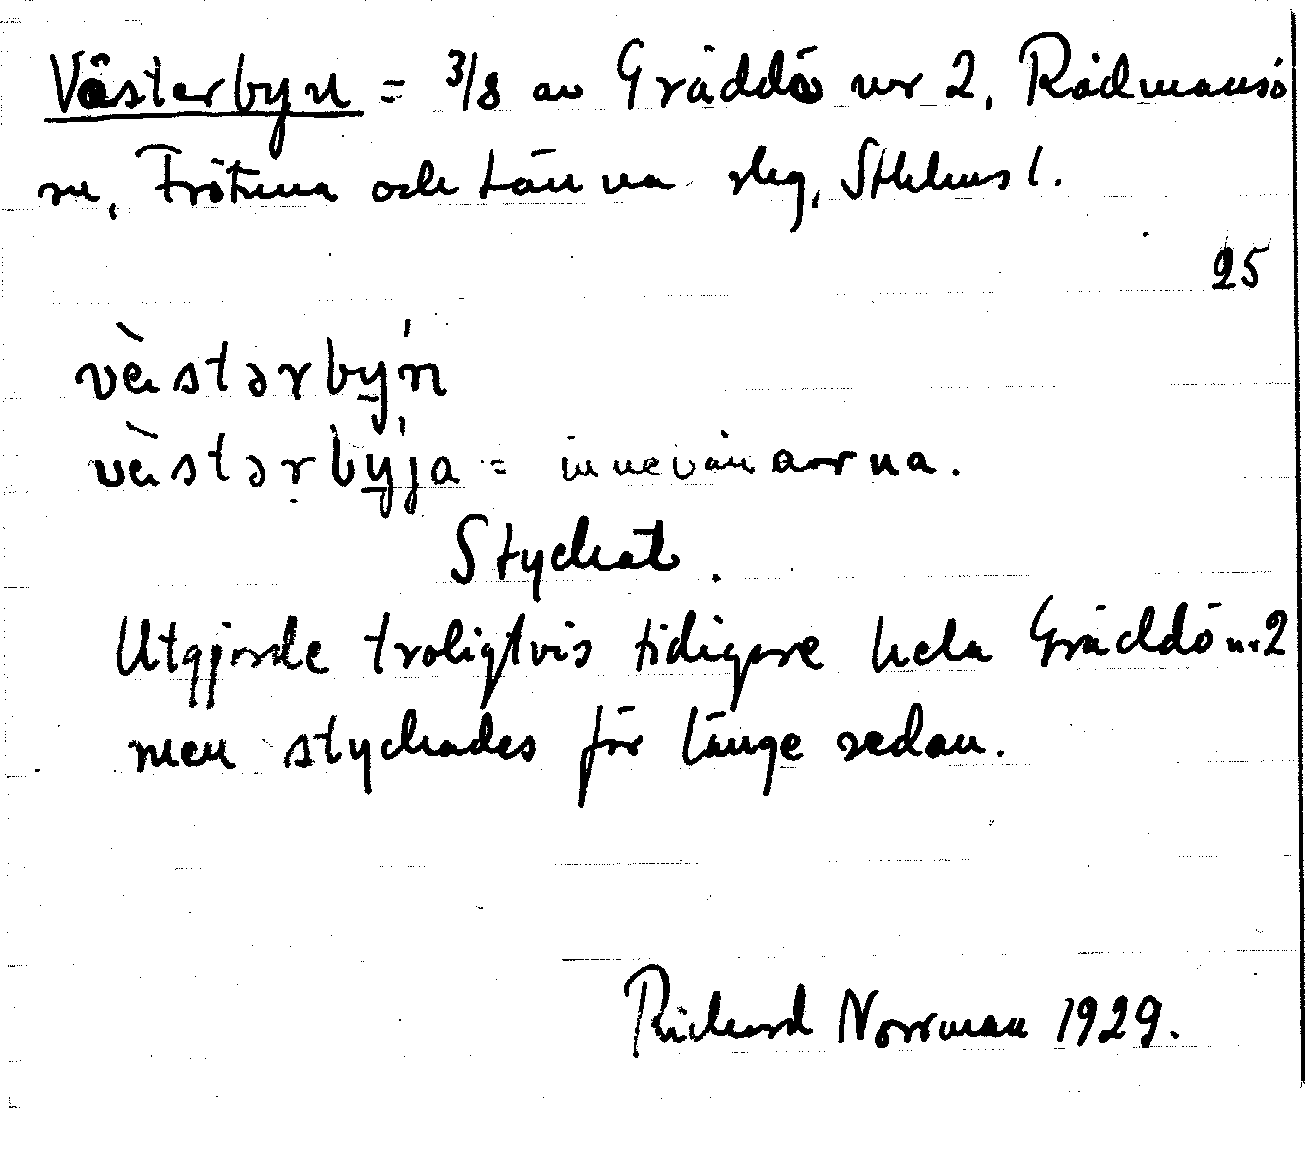 Västerbyn = 3/8 av Gräddö nr 2, Rådmansö
sn, Frötuna och Länna slg, Sthlms l.
25
væ̀stərby̱'n
væ̀stərby̱'ja = innevånarna.
Styckat.
Utgjorde troligtvis tidigare hela Gräddö nr 2
men styckades för länge sedan.
Richard Norrman 1929.